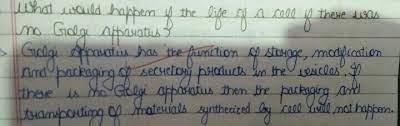 What would happen if the life of a cell if there was
no Golgi apparatus?
Golgi apparatus has the function of storage, modification
and packaging of secretory products in the vesicles. If
there is no Golgi apparatus then the packaging and
transporting of materials synthesized by cell will not happen.